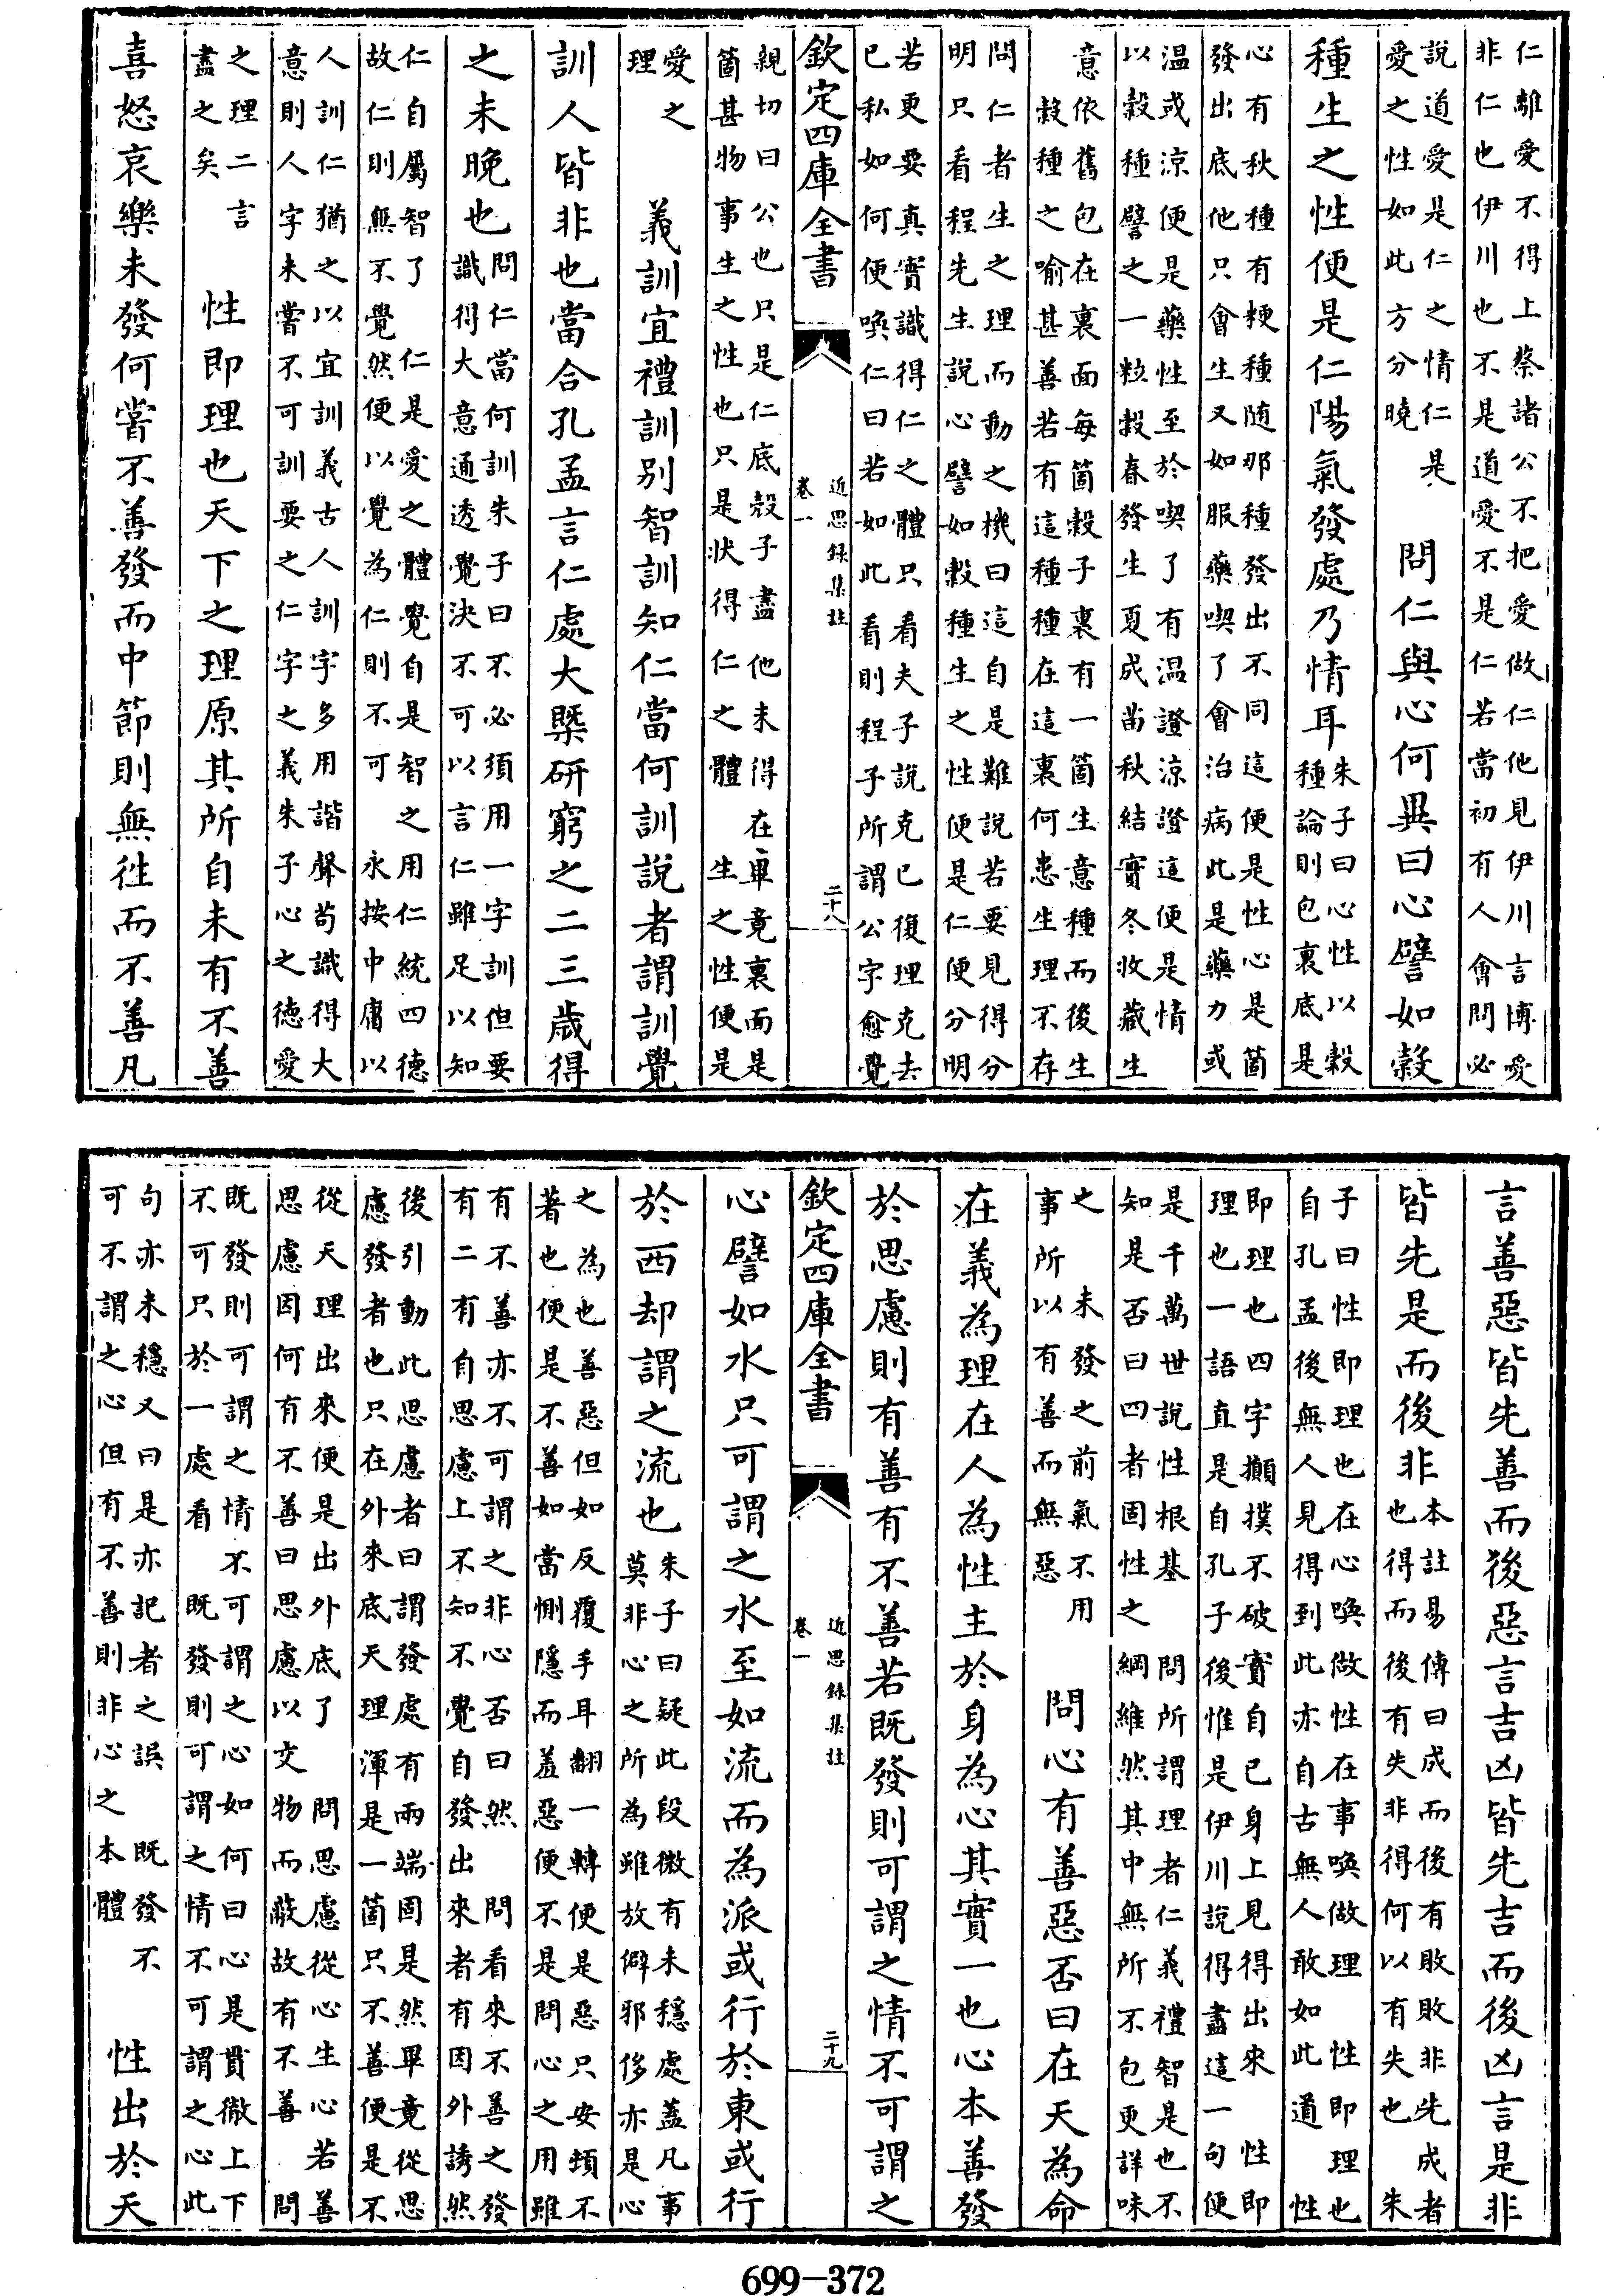 仁離愛不得上蔡諸公不把愛做仁他見伊川言博愛
非仁也伊川也不是道愛不是仁若當初有人會問必
說道愛是仁之情仁是
愛之性如此方分曉
問仁與心何異曰心譬如穀
種生之性便是仁陽氣發處乃情耳
朱子曰心性以穀
種論則包裹底是
心有秋種有粳種随那種發出不同這便是性心是箇
發出底他只會生又如服藥喫了會治病此是藥力或
温或凉便是藥性至於喫了有温證凉證這便是情
以穀種譬之一粒穀春發生夏成苗秋結實冬收藏生
意依舊包在裏面每箇穀子裏有一箇生意種而後生
穀種之喻甚善若有這種種在這裏何患生理不存
問仁者生之理而動之機曰這自是難說若要見得分
明只看程先生說心譬如穀種生之性便是仁便分明
若更要真實識得仁之體只看夫子說克已復理克去
已私如何便喚仁曰若如此看則程子所謂公字愈覺
欽定四庫全書
近思録集註
卷一
二十八
親切曰公也只是仁底殻子盡他未得在畢竟裏面是
箇甚物事生之性也只是狀得仁之體 生之性便是
愛之
理
義訓宜禮訓别智訓知仁當何訓說者謂訓覺
訓人皆非也當合孔孟言仁處大槩研窮之二三歲得
之未晚也
問仁當何訓朱子曰不必須用一字訓但要
識得大意通透覺決不可以言仁雖足以知
仁自屬智了 仁是愛之體覺自是智之用仁統四德
故仁則無不覺然便以覺為仁則不可 永按中庸以
人訓仁猶之以宜訓義古人訓字多用諧聲苟識得大
意則人字未嘗不可訓要之仁字之義朱子心之德愛
之理二言
盡之矣
性即理也天下之理原其所自未有不善
喜怒哀樂未發何嘗不善發而中節則無往而不善凡
言善惡皆先善而後惡言吉凶皆先吉而後凶言是非
皆先是而後非
本註易傳曰成而後有敗敗非先成者
也得而後有失非得何以有失也 朱
子曰性即理也在心喚做性在事喚做理 性即理也
自孔孟後無人見得到此亦自古無人敢如此道 性
即理也四字攧撲不破實自已身上見得出來 性即
理也一語直是自孔子後惟是伊川說得盡這一句便
是千萬世說性根基 問所謂理者仁義禮智是也不
知是否曰四者固性之綱維然其中無所不包更詳味
之 未發之前氣不用
事所以有善而無惡
問心有善惡否曰在天為命
在義為理在人為性主於身為心其實一也心本善發
於思慮則有善有不善若既發則可謂之情不可謂之
欽定四庫全書
近思録集註
卷一
二十九
心譬如水只可謂之水至如流而為派或行於東或行
於西却謂之流也
朱子曰疑此段微有未穩處蓋凡事
莫非心之所為雖放僻邪侈亦是心
之為也善惡但如反覆手耳翻一轉便是惡只安頓不
著也便是不善如當惻隱而羞惡便不是問心之用雖
有不善亦不可謂之非心否曰然 問看來不善之發
有二有自思慮上不知不覺自發出來者有因外誘然
後引動此思慮者曰謂發處有兩端固是然畢竟從思
慮發者也只在外來底天理渾是一箇只不善便是不
從天理出來便是出外底了 問思慮從心生心若善
思慮因何有不善曰思慮以交物而蔽故有不善 問
既發則可謂之情不可謂之心如何曰心是貫徹上下
不可只於一處看 既發則可謂之情不可謂之心此
句亦未穩又曰是亦記者之誤 既發不
可不謂之心但有不善則非心之本體
性出於天
699-372